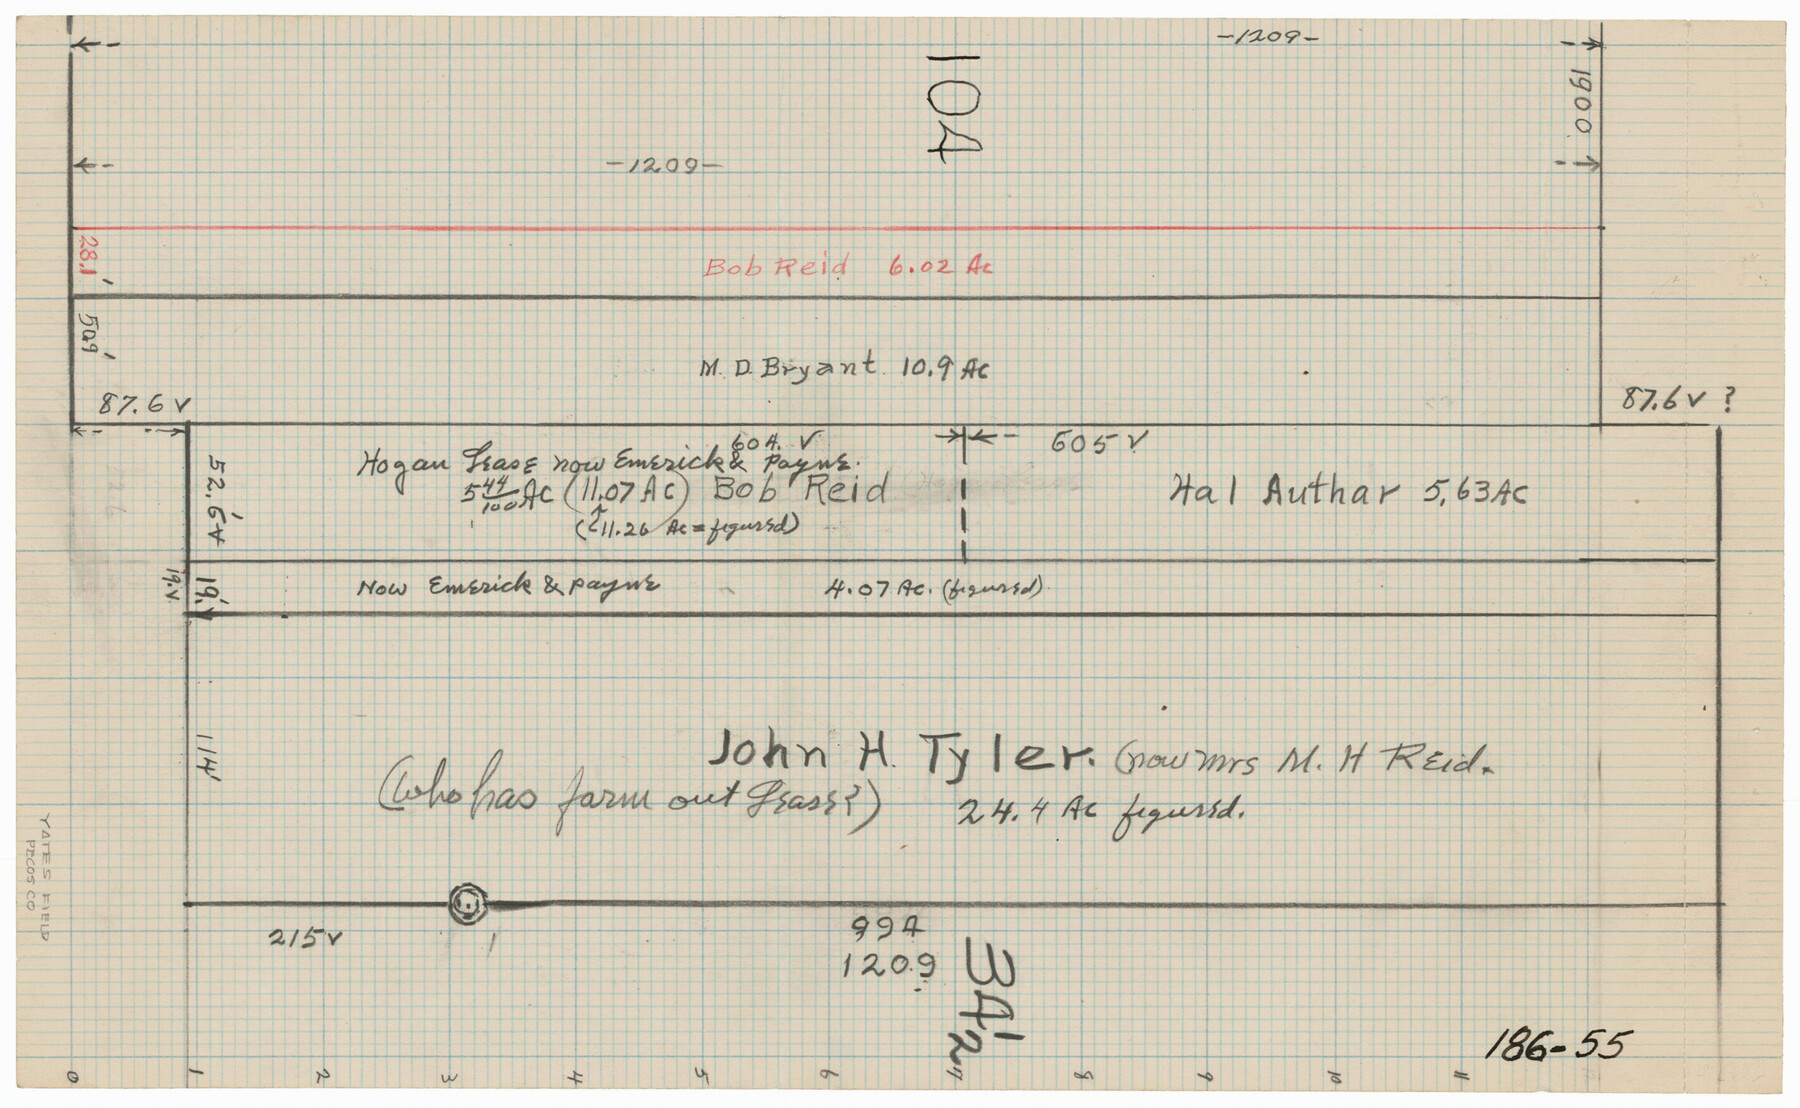 -1209-
104
1900
-1209-
28.1'
Bob Reid 6.02 Ac
50.9'
M. D. Bryant 10.9 Ac
87.6 v
87.6 v ?
604. V
605 V
Hogan Lease now Emerick & Payne.
5 44/100 Ac (11.07 Ac) Bob Reid
Hal Authar 5.63 Ac
(11.26 Ac = figured)
52.6 v
19. v
19.'
Now Emerick & Payne 4.07 Ac. (figured)
114'
John H. Tyler. (now Mrs M. H Reid.
(who has farm out Lease?) 24.4 Ac figured.
YATES FIELD
PECOS CO
215 v
994
1209
34 1/2
186-55
0 1 2 3 4 5 6 7 8 9 10 11